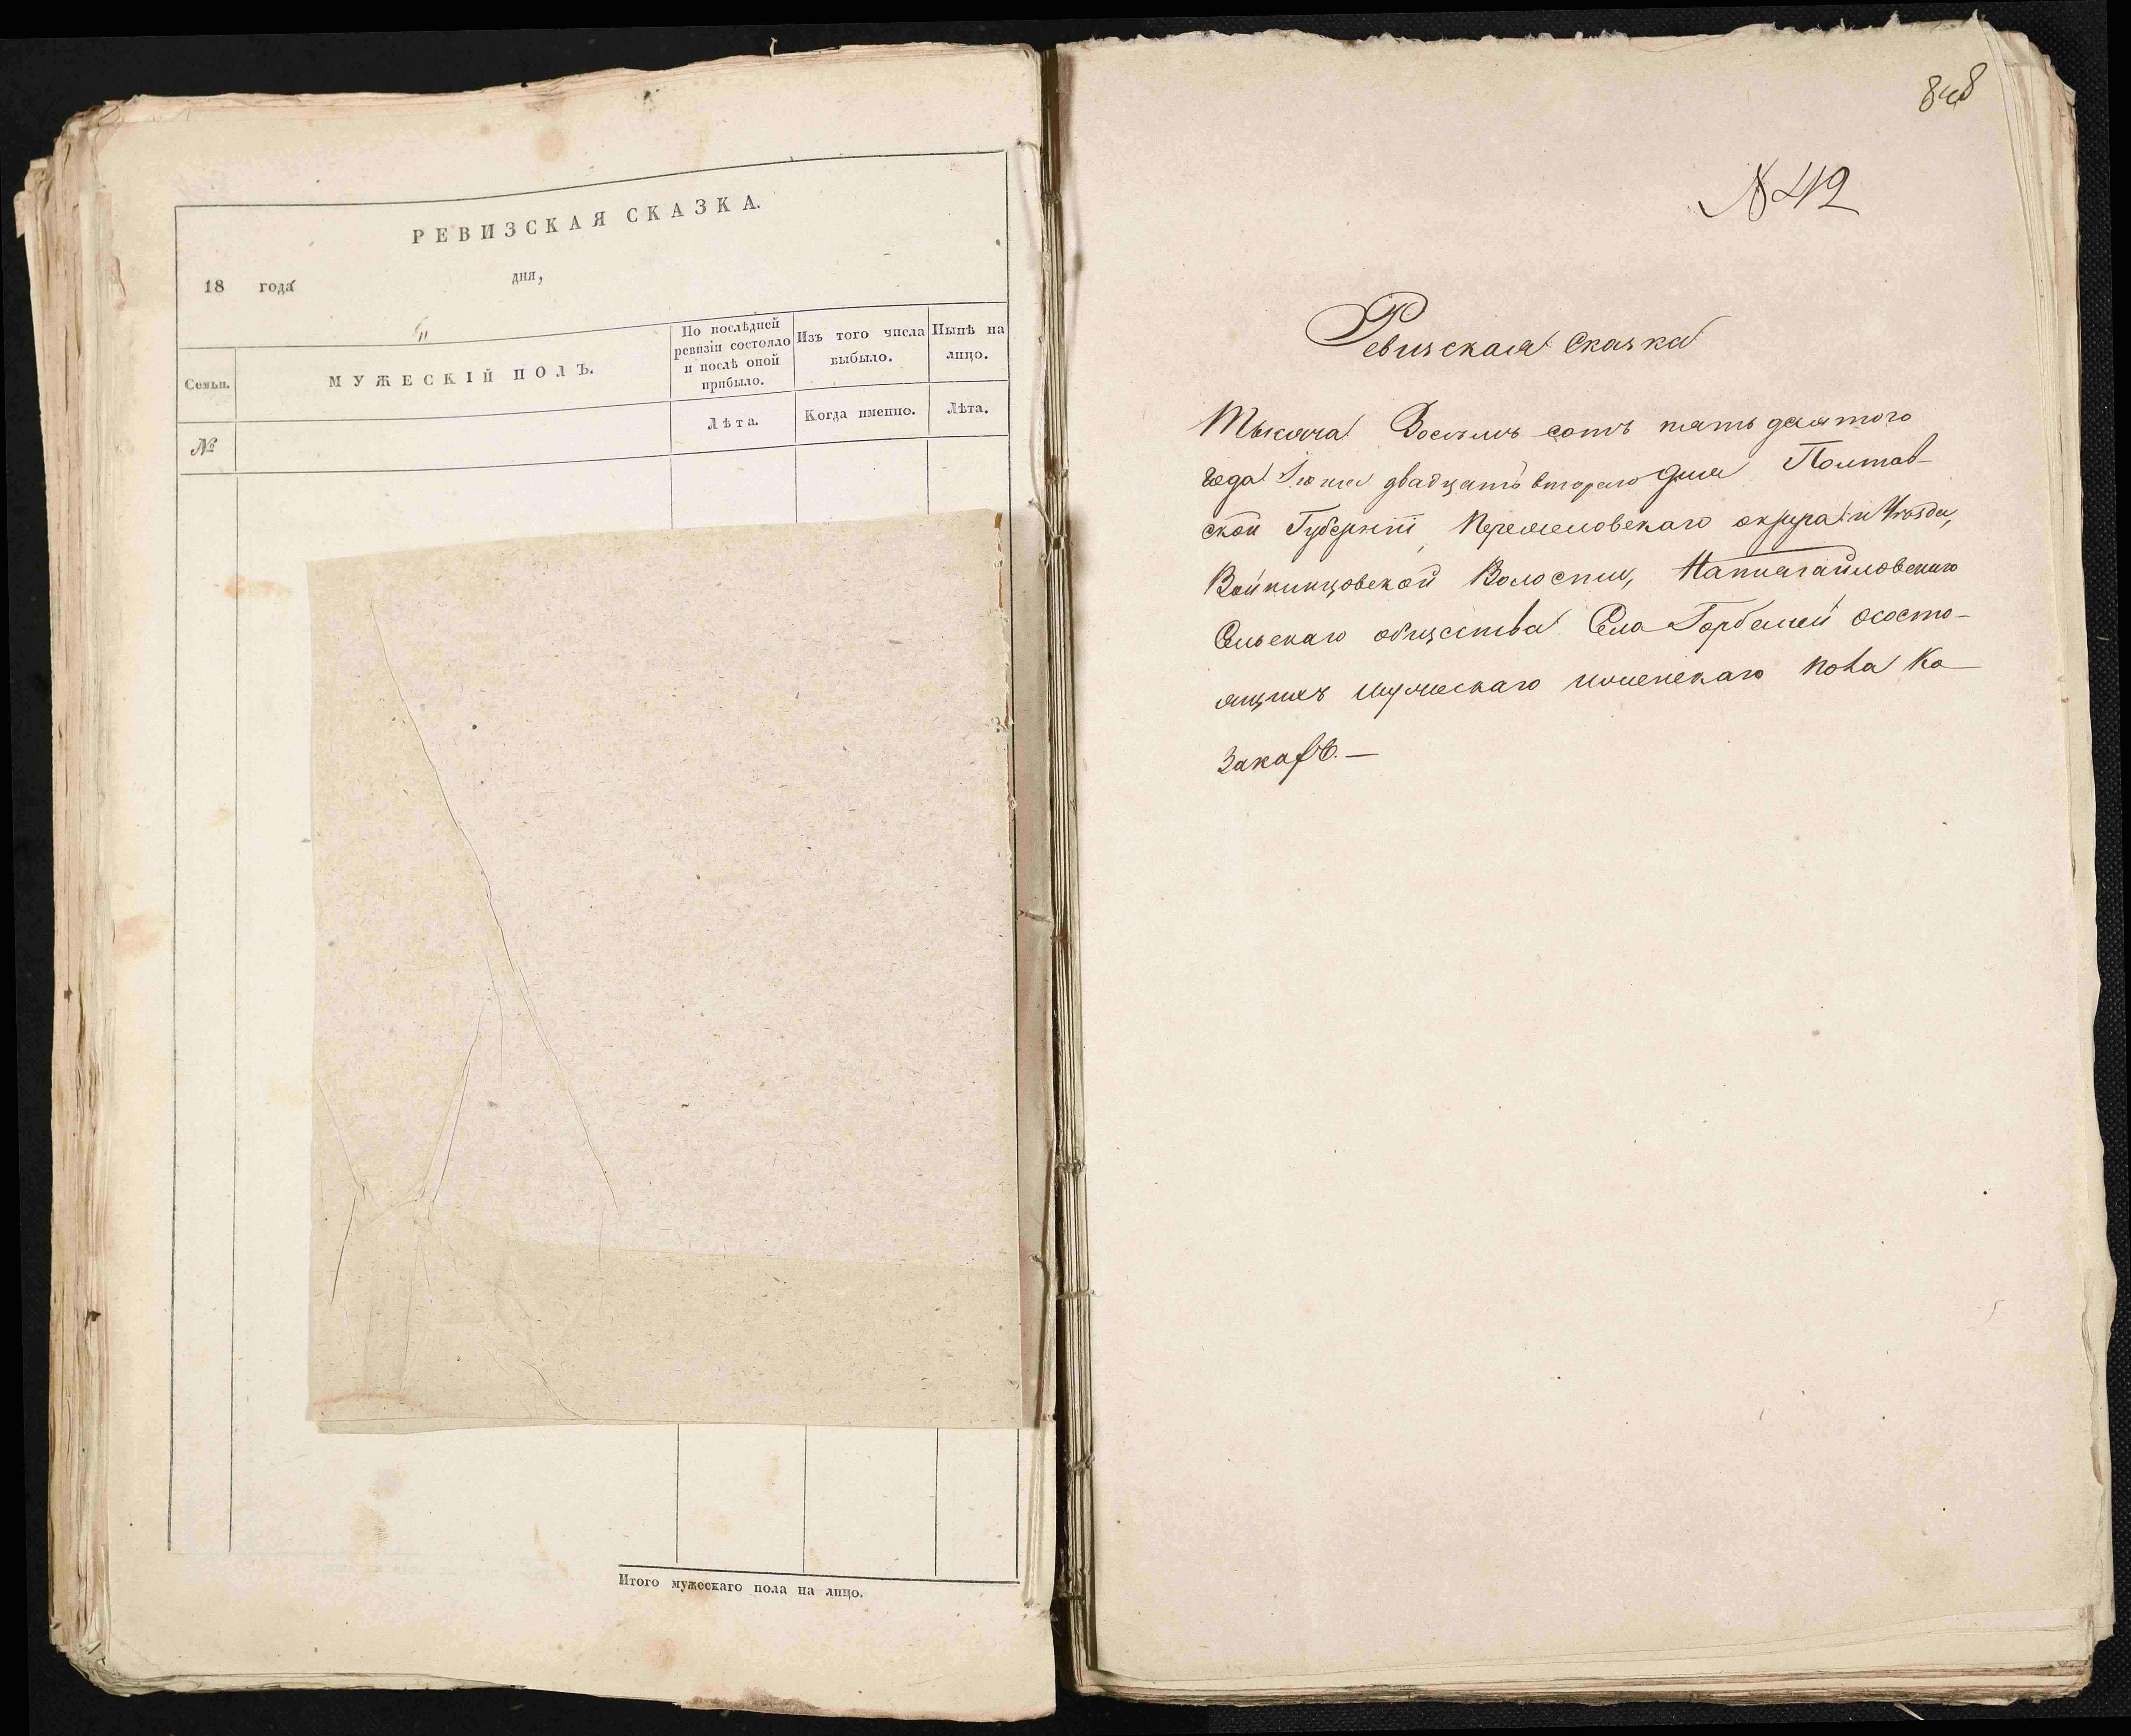 РЕВИЗСКАЯ СКАЗКА.
18 года дня,
Семьи.
МУЖЕСКІЙ ПОЛЪ.
По послѣдней
ревизіи состояло
и послѣ оной
прибыло.
Изъ того числа
выбыло.
Нынѣ на
лицо.
№
Лѣта.
Когда именно.
Лѣта.
Итого мужескаго пола на лицо.
848
№ 42
Ревизская Сказка
Тысяча Восемь сотъ пятьдесятого
года Іюня двадцать втораго дня Полтав-
ской Губерніи, округа и Уѣзда,
Войнинцовской Волости,
Сельскаго общества Села Горбаней ососто-
ящихъ мужескаго женскаго пола Ка-
закахъ.—